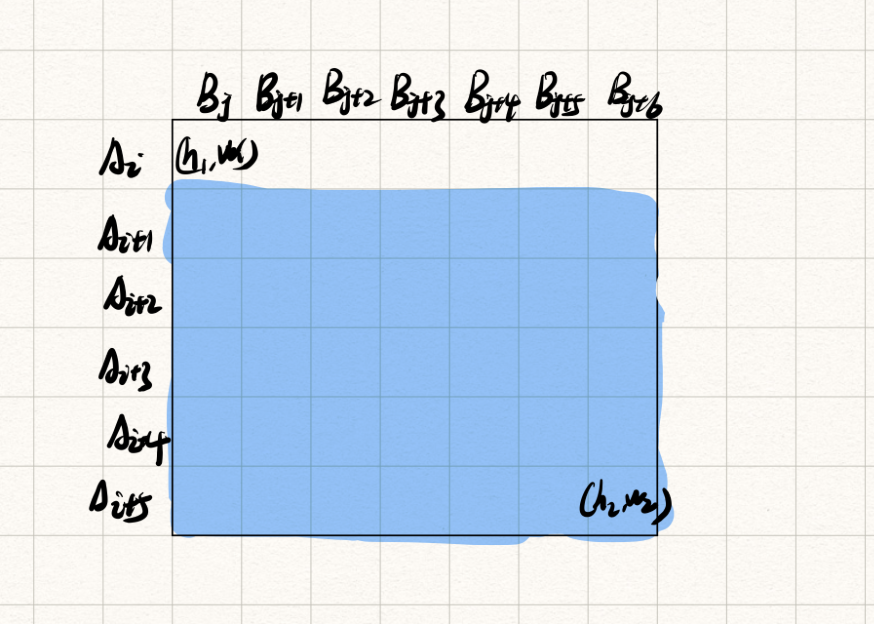 Bj Bj+1 Bj+2 Bj+3 Bj+4 Bj+5 Bj+6
Ai (h1,w1)
Ai+1
Ai+2
Ai+3
Ai+4
Ai+5 (h2,w2)